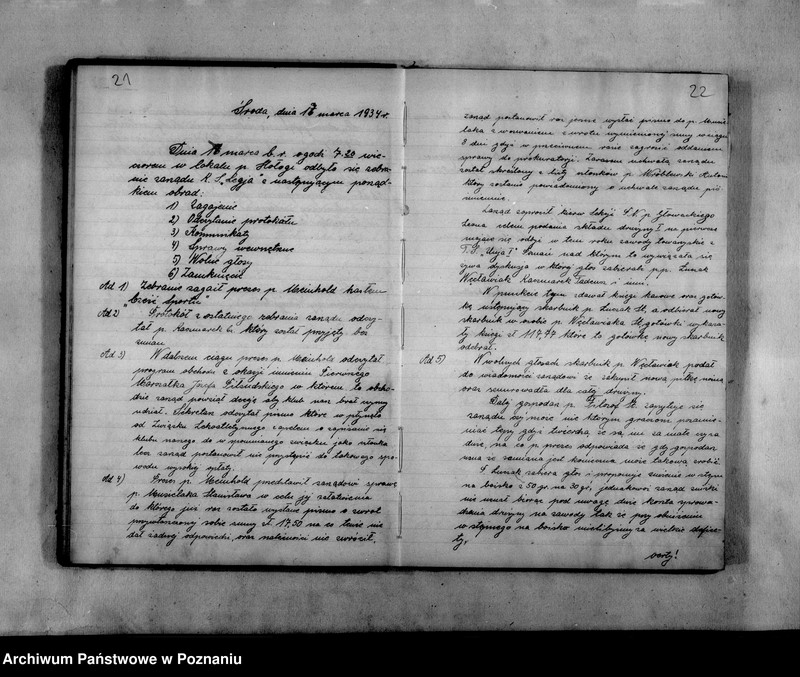 21
Środa, dnia 16 marca 1934 r.
Dnia 16 marca b. r. o godz. 7.30 wie-
czorem w lokalu p. Hologi odbyło się zebra-
nie zarządu K. S. "Legja" z następującym porząd-
kiem obrad:
1) Zagajenie
2) Odczytanie protokułu
3) Komunikaty
4) Sprawy wewnętrzne
5) Wolne głosy
6) Zamknięcie
Ad 1) Zebranie zagaił prezes p. Meinhold hasłem
"Cześć Sportu"
Ad 2) Protokół z ostatniego zebrania zarządu odczy-
tał p. Kaczmarek który został przyjęty bez
zmian
Ad 3) W dalszem ciągu prezes p. Meinhold odczytał
program obchodu z okazji imienin Pierwszego
Marszałka Józefa Piłsudskiego w którem to obcho-
dzie zarząd powziął decyzję aby klub nasz brał czynny
udział. Sekretarz odczytał pismo które wpłynęło
od Związku Lekoatletycznego z apelem o zapisanie się
klubu naszego do wspomnianego związku jako członka
lecz zarząd postanowił nie przystąpić do takowego spo-
wodu wysokiej opłaty.
Ad 4) Prezes p. Meinhold przedstawił zarządowi sprawę
p. Musielaka Stanisława w celu jej załatwienia
do którego już raz zostało wysłane pismo o zwrot
przywłaszczonej sobie sumy zł. 17,50 na co tenże nie
dał żadnej odpowiedzi, oraz należności nie zwrócił,
22
zarząd postanowił raz jeszcze wysłać pismo do p. Musie-
laka z wezwaniem zwrotu wymienionej sumy w ciągu
8 dni gdyż w przeciwnym razie zagrozić oddaniem
sprawy do prokuratorji. Zarazem uchwałą zarządu
został skreślony z listy członków p. Wróblewski
który zostanie powiadomiony o uchwale zarządu piś-
miennie.
Zarząd zaprosił kierow. sekcji p. Głowackiego
Leona celem podania składu drużyny I na pierwsze
mające się odbyć w tem roku zawody towarzyskie z
"Unja I" nad którym to wywiązała się
żywa dyskusja w której głos zabierali p.p. Żurek
Węcławiak Kaczmarek Tadeusz i inni.
W punkcie tym zdawał księgi kasowe oraz gotów-
kę ustępujący skarbnik p. Żurek St. a odbierał nowy
skarbnik w osobie p. Węcławiaka St. gotówki wykaza-
ły księgi zł. 117,77 które to gotówkę nowy skarbnik
odebrał.
Ad 5) W wolnych głosach skarbnik p. Węcławiak podał
do wiadomości zarządowi że zakupił nową piłkę nożną
oraz sznurowadła dla całej drużyny.
Dalej gospodarz p. Filozof St. zapytuje się
zarządu czy może niektórym graczom pozamie-
niać tępy gdyż twierdzą że są im za małe czy za
duże, na co p. prezes odpowiada że gdy gospodarz
uzna że zamiana jest konieczna może takową zrobić.
P. Żurek zabiera głos i proponuje zniżenie wstępu
na boisko z 50 gr. na 30 gr., jednakowoż zarząd zniżki
nie uznał biorąc pod uwagę duże koszta sprowa-
dzenia drużyny na zawody tak że przy obniżeniu
wstępnego na boisko mielibyśmy za wielkie deficy-
ty.
verte!
Archiwum Państwowe w Poznaniu